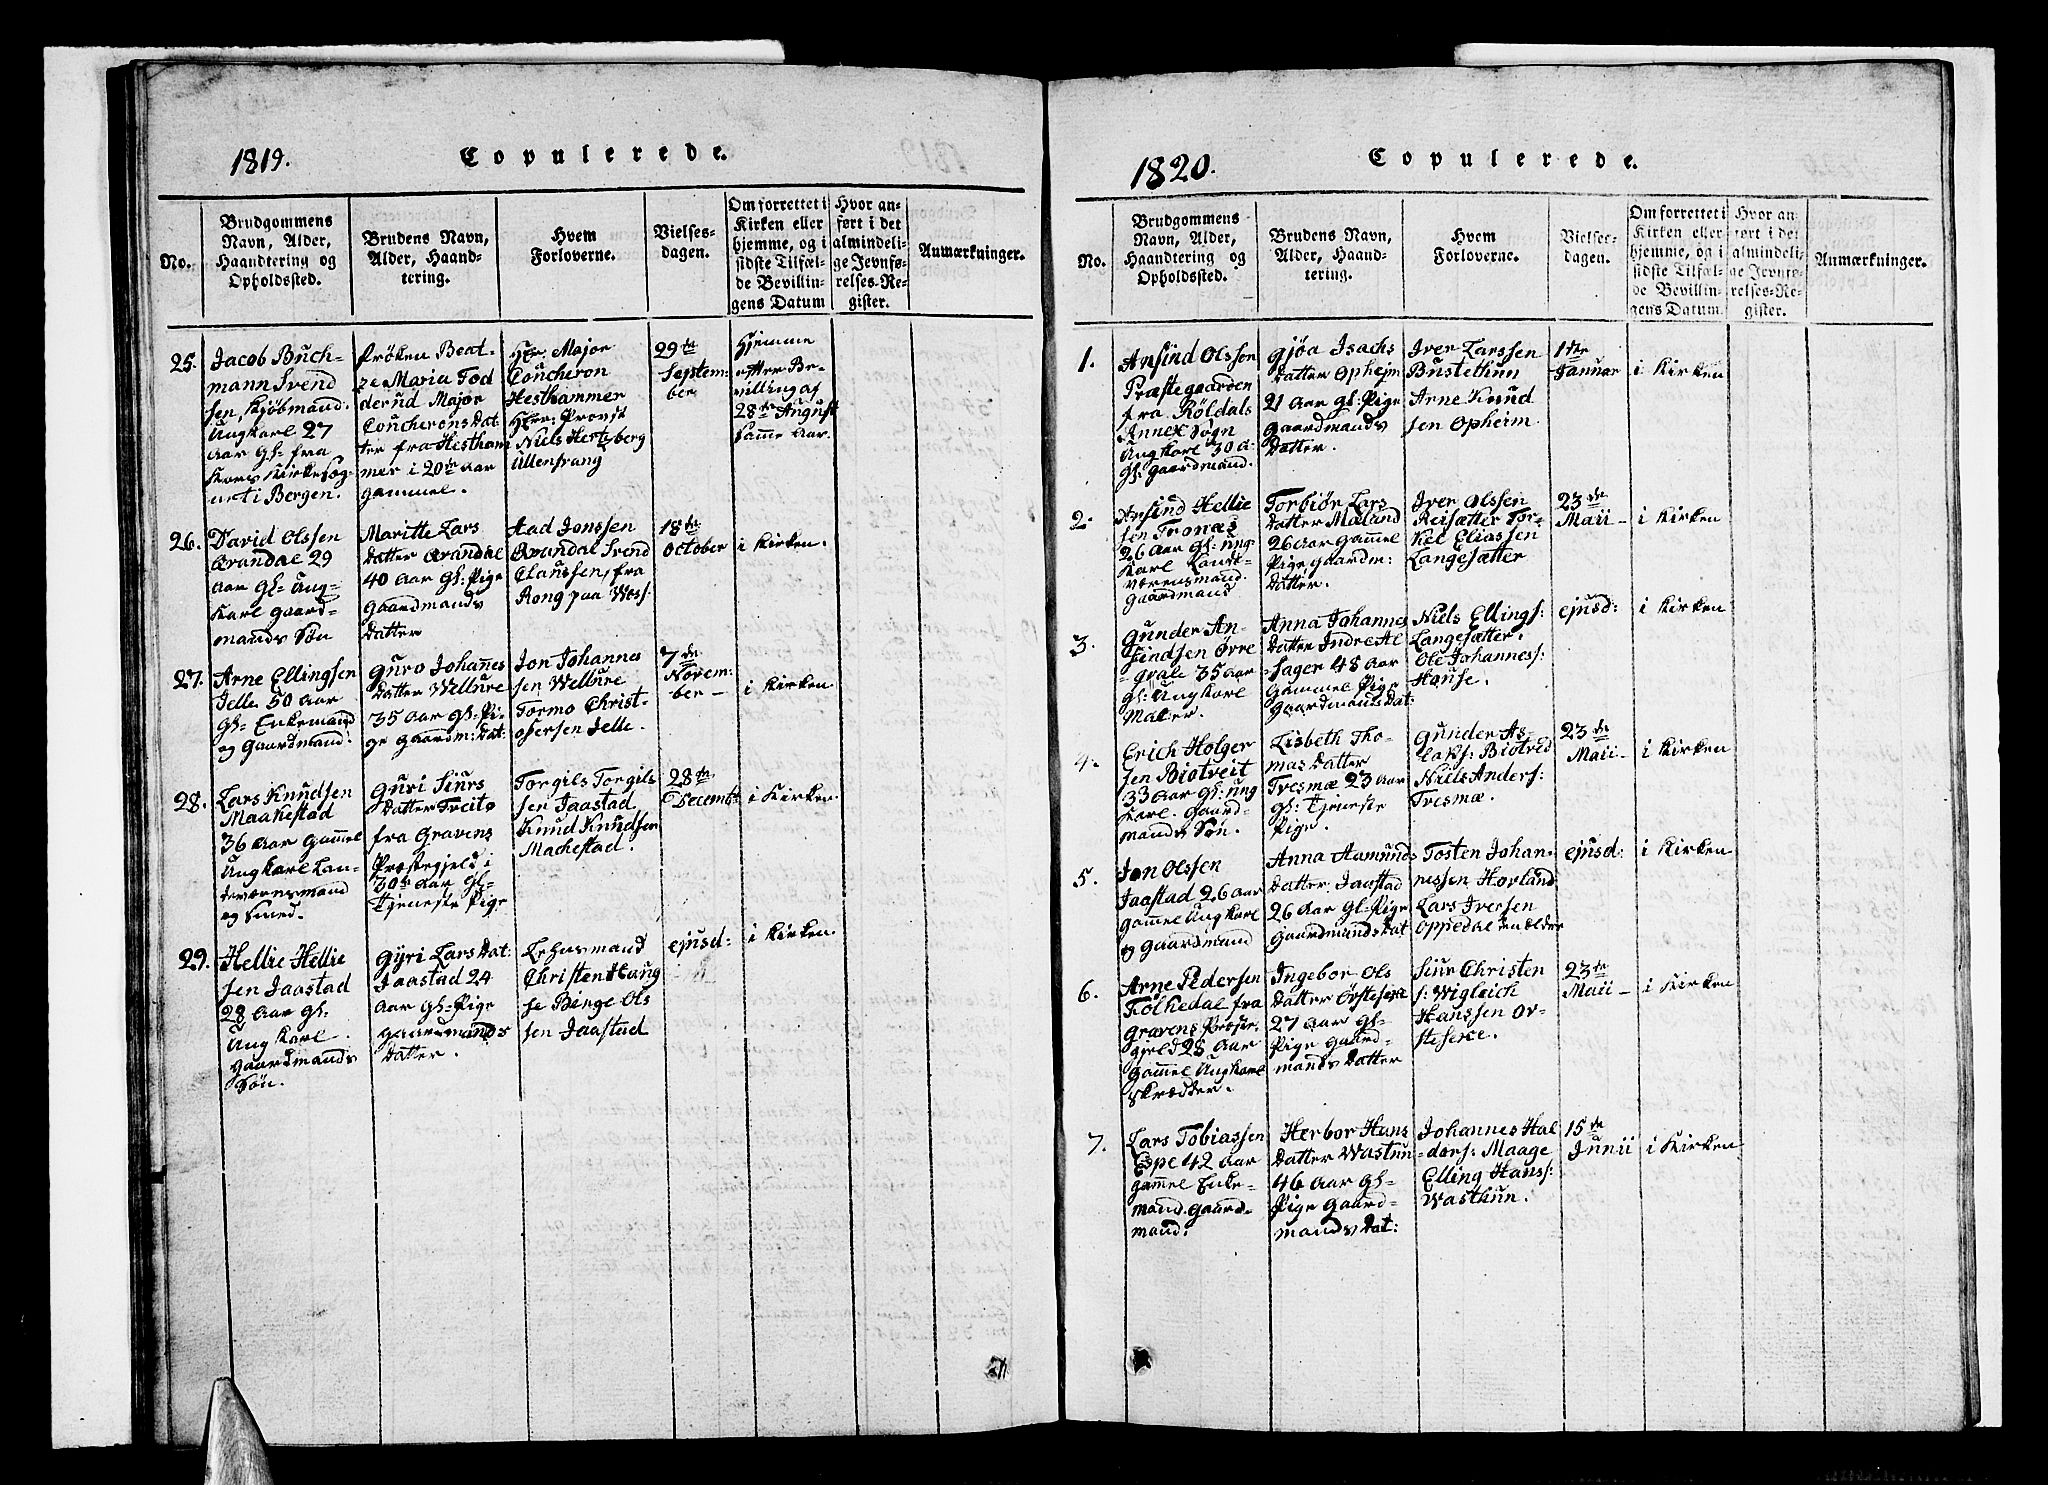 1819.
Copulerede.
No.
Brudgommens
Navn, Alder,
Haandtering og
Opholdssted.
Brudens Navn,
Alder, Haand-
tering.
Hvem
Forloverne.
Vielses-
dagen.
Om forrettet i
Kirken eller
hjemme, og i
sidste Tilfæl-
de Bevillin-
gens Datum
Hvor an-
ført i det
almindeli-
ge Jevnfø-
relses-Re-
gister.
Anmærkninger.
25.
Jacob Buch-
mann Svend
sen, Kjøbmand.
Ungkarl 27
Aar Gl: fra
Kors Kirkesog-
net i Bergen.
Frøken Beat-
ze Maria Tod
derud Major
Coucherons Dat
ter fra Hestham
mer i 20de Aar
gammel.
Hr: Major
Coucheron
Hesthammer
Herr: Provst
Niels Hertzberg
Ullensvang
29de
Septem-
ber
Hjemme
efter Be-
villing af
28de August
samme Aar.
26.
David Olssen
Aar Gl: Ung-
Karl Gaard-
mands Søn
Maritte Lars
Datter
40 Aar Gl: Pige
Gaardmands
Datter
Aad Jonssen
Svend
Claussen, fra
Rong paa Woss:
18de
October
i Kirken.
27.
Arne Ellingsen
Jelle 50 Aar
Gl: Enkemand
og Gaardmand.
Guro Johannes
Datter Wellure
35 Aar Gl: Pi-
ge Gaardm: Dat:
Jon Johannes
sen Wellure
Tormo Christ-
ofersen Jelle.
7de
Novem-
ber –
i Kirken.
28.
Lars Knudsen
Maakestad
36 Aar Gammel
Ungkarl Lan-
deværnsmand
og Smed.
Guri Siurs
Datter
fra Gravens
Præstegjeld i
30te Aar Gl:
Tjeneste Pige
Torgils Torgils
sen Jaastad
Knud Knudsen
Machestad.
28de
Decembr
i Kirken.
29.
Hellie Hellie
sen Jaastad
28 Aar Gl:
Ung Karl.
Gaardmands
Søn.
Gyri Lars Dat:
Jaastad 24
Aar Gl: Pige
Gaardmands
Datter.
Lehnsmand
Christen Haug
se Birge Ols
sen Jaastad
ejusd:
i Kirken.
1820.
Copulerede.
No.
Brudgommens
Navn, Alder,
Haandtering og
Opholdssted.
Brudens Navn,
Alder, Haand-
tering.
Hvem
Forloverne.
Vielses-
dagen.
Om forrettet i
Kirken eller
hjemme, og i
sidste Tilfæl-
de Bevillin-
gens Datum.
Hvor an-
ført i det
almindeli-
ge Jevnfø-
relses-Re-
gister.
Anmærkninger.
1.
Ansind Olssen
Præstegaarden
fra Röldals
Annex Sogn
Ung Karl 30 A:
Gl: Gaardmand.
Gjøa Isachs
Datter Opheim
21 Aar Gl: Pige
Gaardmands
Datter.
Iver Larssen
Bustethun
Arne Knud
sen Opheim
1ste
Januar
i Kirken
2.
Ansind Hellie
sen Tronæs
26 Aar Gl: Ung-
Karl Land-
værensmand.
Gaardmand
Torbiör Lars
Datter Maland
26 Aar Gammel
Pige Gaardm:
Datter.
Iver Olssen
Reisætter Tor-
kel Eliassen
Langesætter
23de
Maii –
i Kirken
3.
Gunder An-
sindsen Øvre
35 Aar
Gl: Ungkarl
Maler.
Anna Johannes
Datter Indre Al
sager 48 Aar
Gammel Pige
Gaardmands Dat:
Niels Ellings:
Langesætter.
Ole Johanness:
Hause.
ejusd:
i Kirken
4.
Erich Holger
sen Biotveit
33 Aar Gl: Ung
Karl. Gaard-
mands Søn.
Lisbeth Tho-
mas Datter
Tresmæ 23 Aar
Gl: Tjeneste
Pige.
Gunder As-
laks: Biotved
Niels Anders:
Tresmæ.
23de
Maii –
i Kirken
5.
Jon Olssen
Jaastad 26 Aar
Gammel Ungkarl
og Gaardmand
Anna Aamunds
Datter Jaastad
26 Aar Gl: Pige
Gaardmands Dat
Tosten Johan-
nessen Hovland
Lars Iversen
Oppedal den ældre
ejusd:
i Kirken
6.
Arne Pedersen
Folkedal fra
Gravens Præste-
gjeld 28 Aar
Gammel Ungkarl
Skredder.
Ingebor Ols
Datter Östesexe
27 Aar Gl:
Pige Gaard-
mands Datter
Siur Christen
s: Wigleich
Hanssen Ös-
tesexe.
23de
Maii –
i Kirken
7.
Lars Tobiassen
Espe 42 Aar
Gammel Enke-
mand. Gaard-
mand.
Herbor Hans
Datter Wastun
46 Aar Gl:
Pige Gaard-
mands Dat:
Johannes Hal
dors: Maage
Elling Hanss:
Wasthun.
15de
Junii
i Kirken